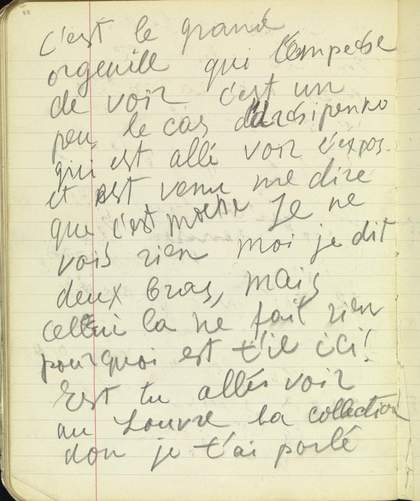 c'est le grand
orgeuille qui l'empeche
de voir c'est un
peu le cas d'Archipenko
qui est allé voir l'expos.
et est venu me dire
que c'est Je ne
vois rien moi je dit
deux bras, mais
cellui la ne fait rien
pourquoi est t'il ici!
Est tu allée voir
au Louvre la collection
don je t'ai parlé